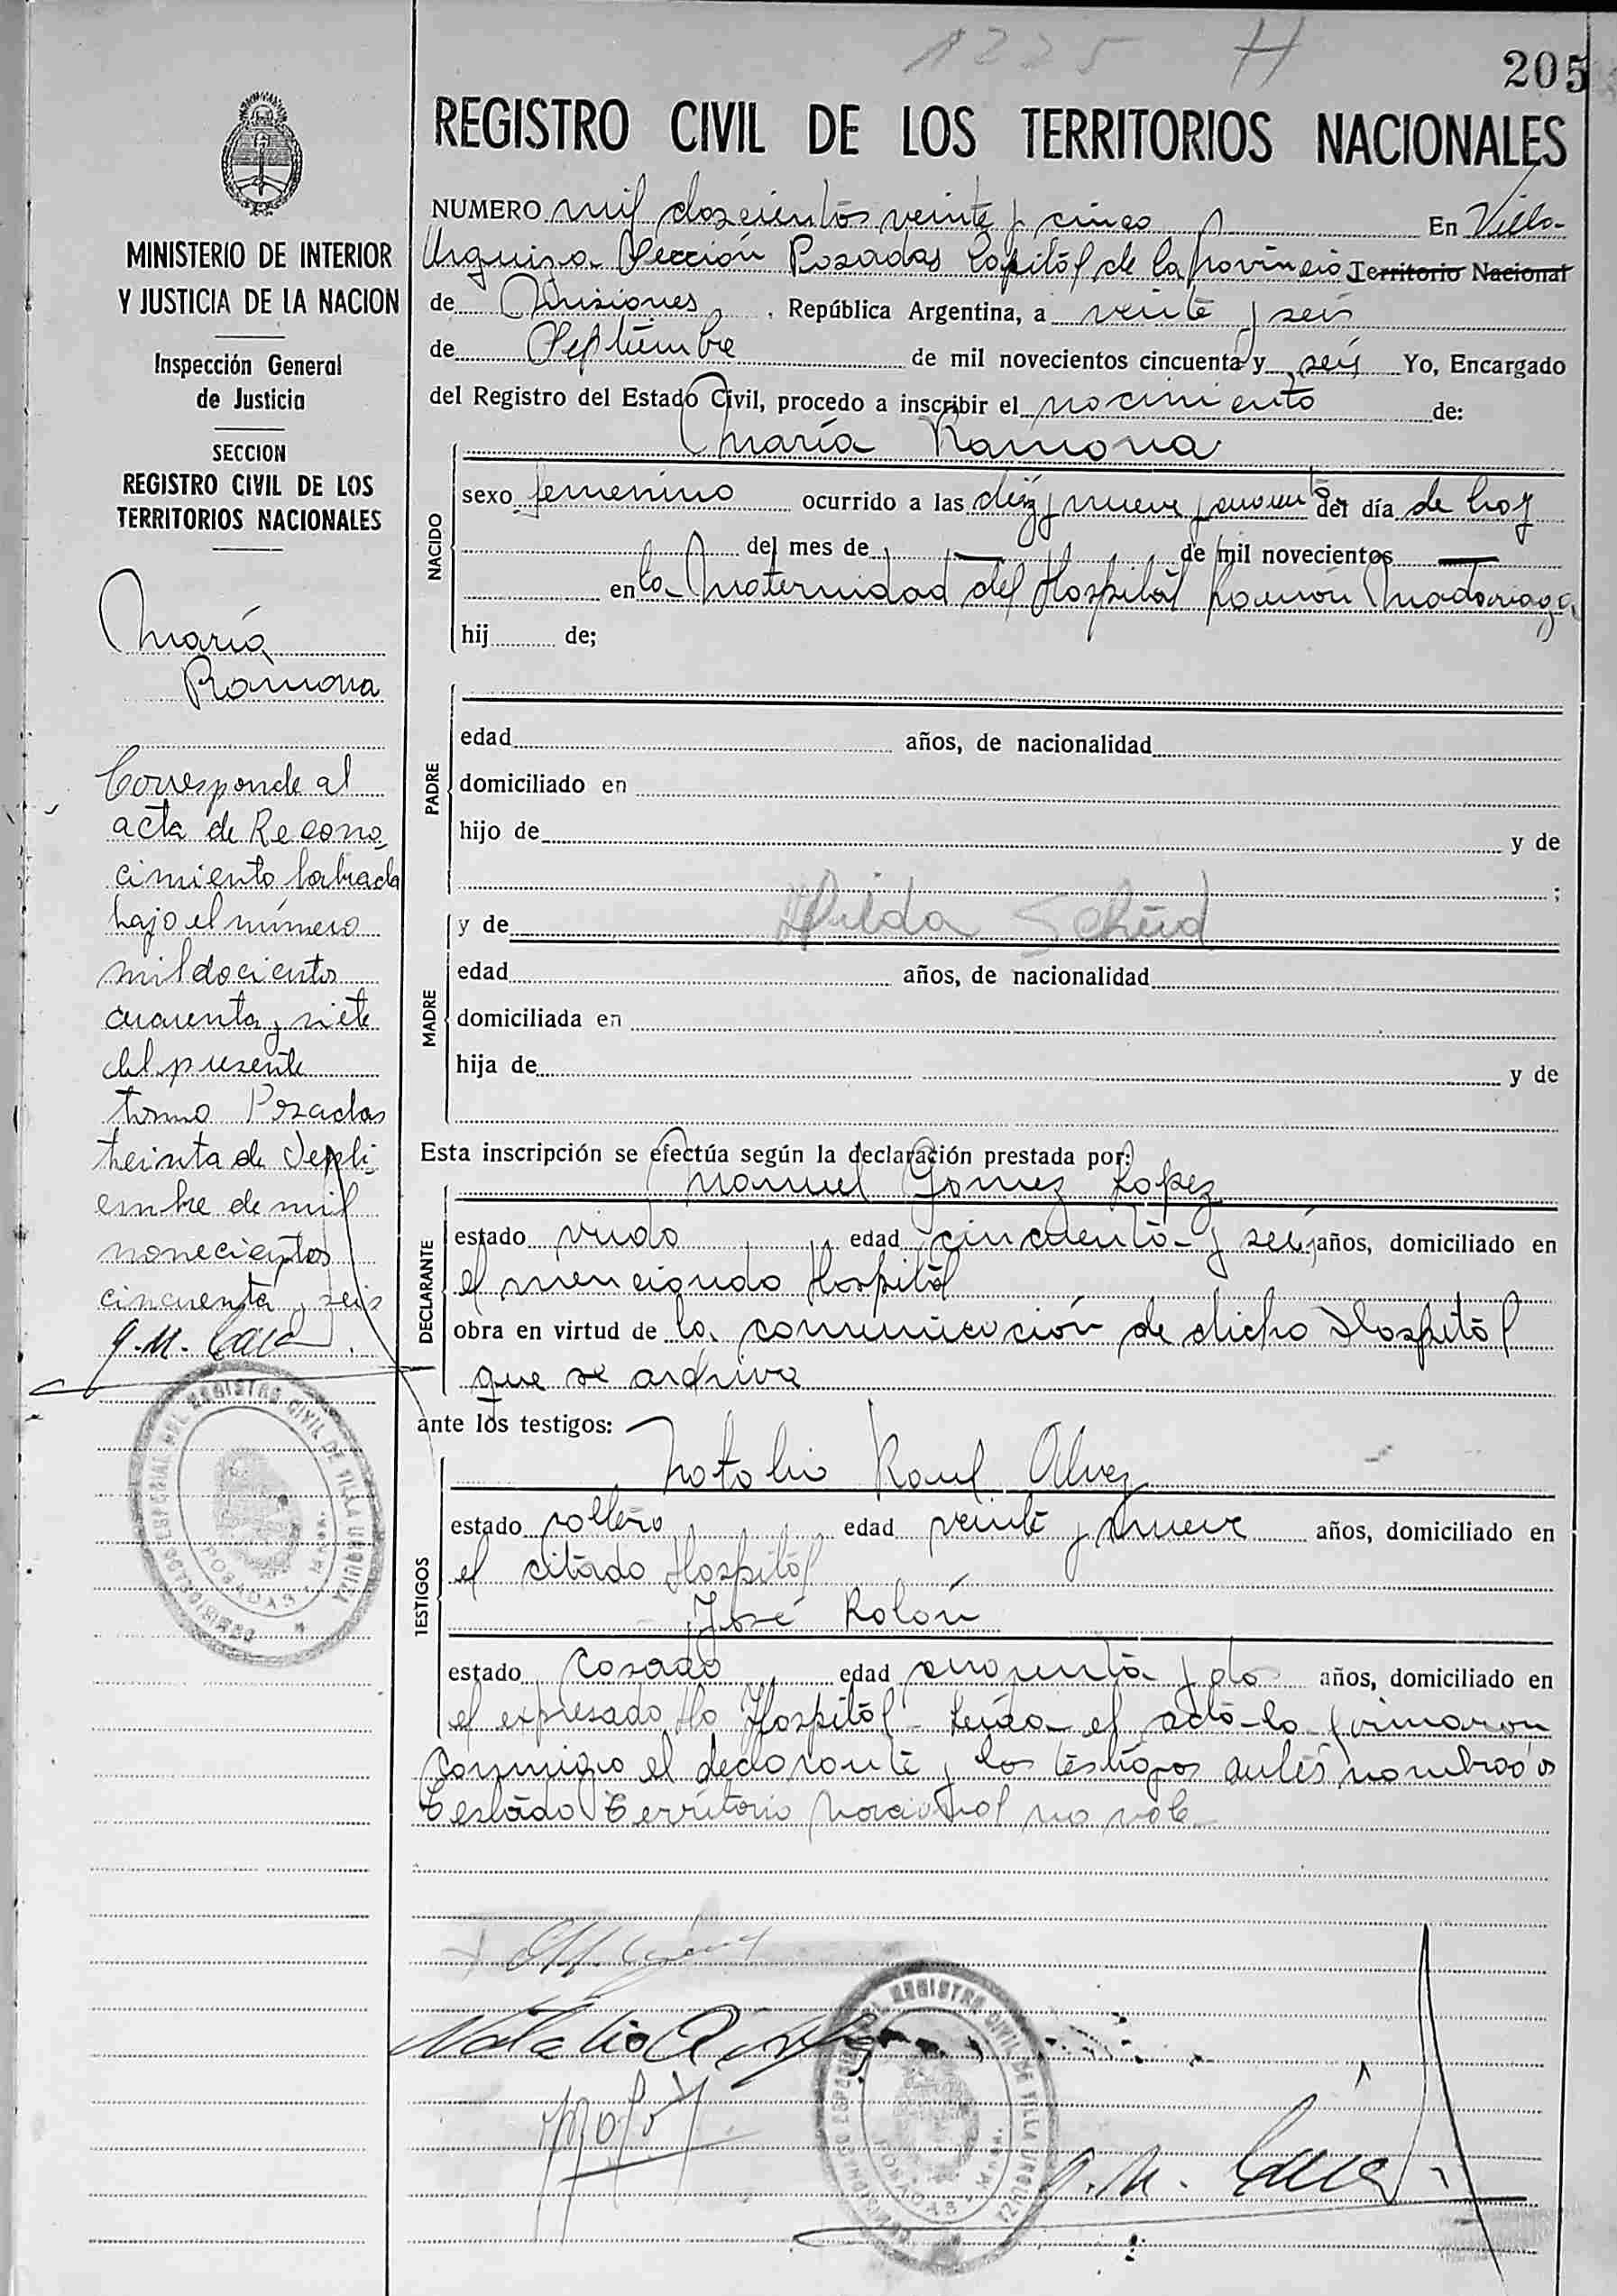 1225 H
205
REGISTRO CIVIL DE LOS TERRITORIOS NACIONALES
MINISTERIO DE INTERIOR
Y JUSTICIA DE LA NACION
Inspección General
de Justicia
SECCION
REGISTRO CIVIL DE LOS
TERRITORIOS NACIONALES
María
Ramona
Corresponde al
acta de Recono
cimiento labrada
bajo el número
mil dociento
cuarenta y siete
del presente
tomo Posadas
treinta de Septi
embre de mil
novecientos
cincuenta y seis
NUMERO mil doscientos veinte y cinco En Villa
Urquiza Sección Posadas Capitál de la provincia Territorio Nacional
de Misiones, República Argentina, a veinte y seis
de Septiembre de mil novecientos cincuenta y seis Yo, Encargado
del Registro del Estado Civil, procedo a inscribir el nacimiento de:
NACIDO
María Ramona
sexo femenino ocurrido a las diéz y nueve y cuarenta del día de hoy
del mes de — de mil novecientos —
en la Maternidad del Hospitál Ramón Madariaga
hij de;
PADRE
edad años, de nacionalidad
domiciliado en
hijo de y de
;
MADRE
y de Hilda Scheid
edad años, de nacionalidad
domiciliada en
hija de y de
Esta inscripción se efectúa según la declaración prestada por:
DECLARANTE
Manuel Gomez Lopez
estado viudo edad cincuenta y seis años, domiciliado en
el mencionado Hospitál
obra en virtud de la comunicación de dicho Hospitál
que se archiva
ante los testigos:
TESTIGOS
Natalio Raul Alvez
estado soltero edad veinte y nueve años, domiciliado en
el citado Hospitál
José Rolón
estado casado edad cincuenta y dos años, domiciliado en
el expresado Hospitál Leida el acta la firmaron
conmigo el declarante y los testigos antes nombrados
Testado Territorio Nacional no vale
REGISTRO CIVIL DE VILLA URQUIZA
POSADAS